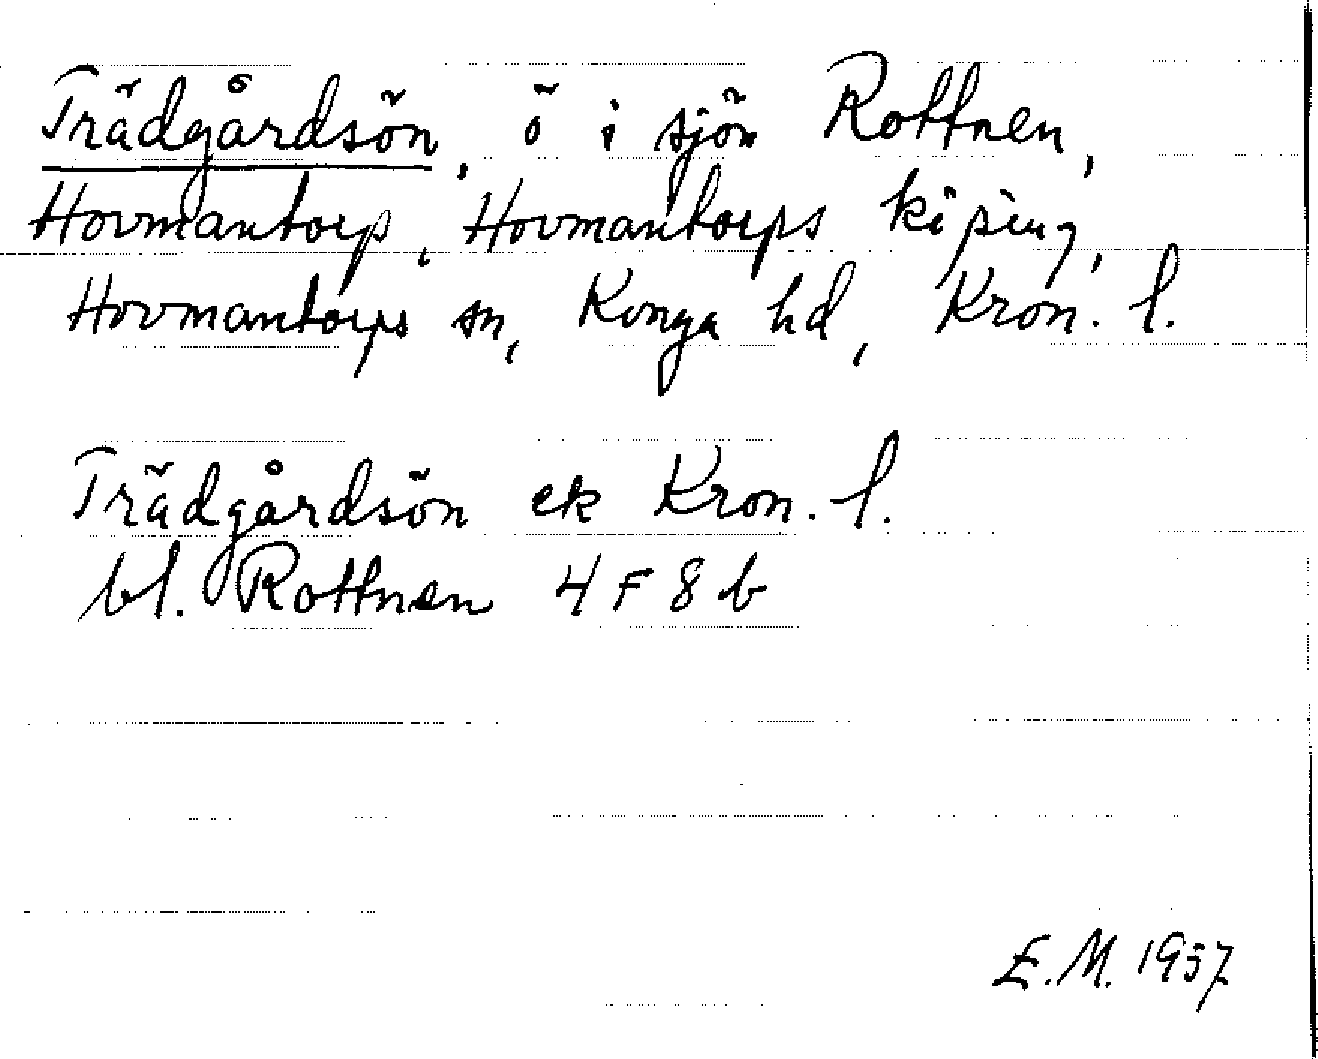 Trädgårdsön, ö i sjön Rottnen,
Hovmantorp, Hovmantorps köping,
Hovmantorps sn, Konga hd, Kron. l.
Trädgårdsön ek Kron. l.
bl. Rottnen 4 F 8 b
E.M. 1957